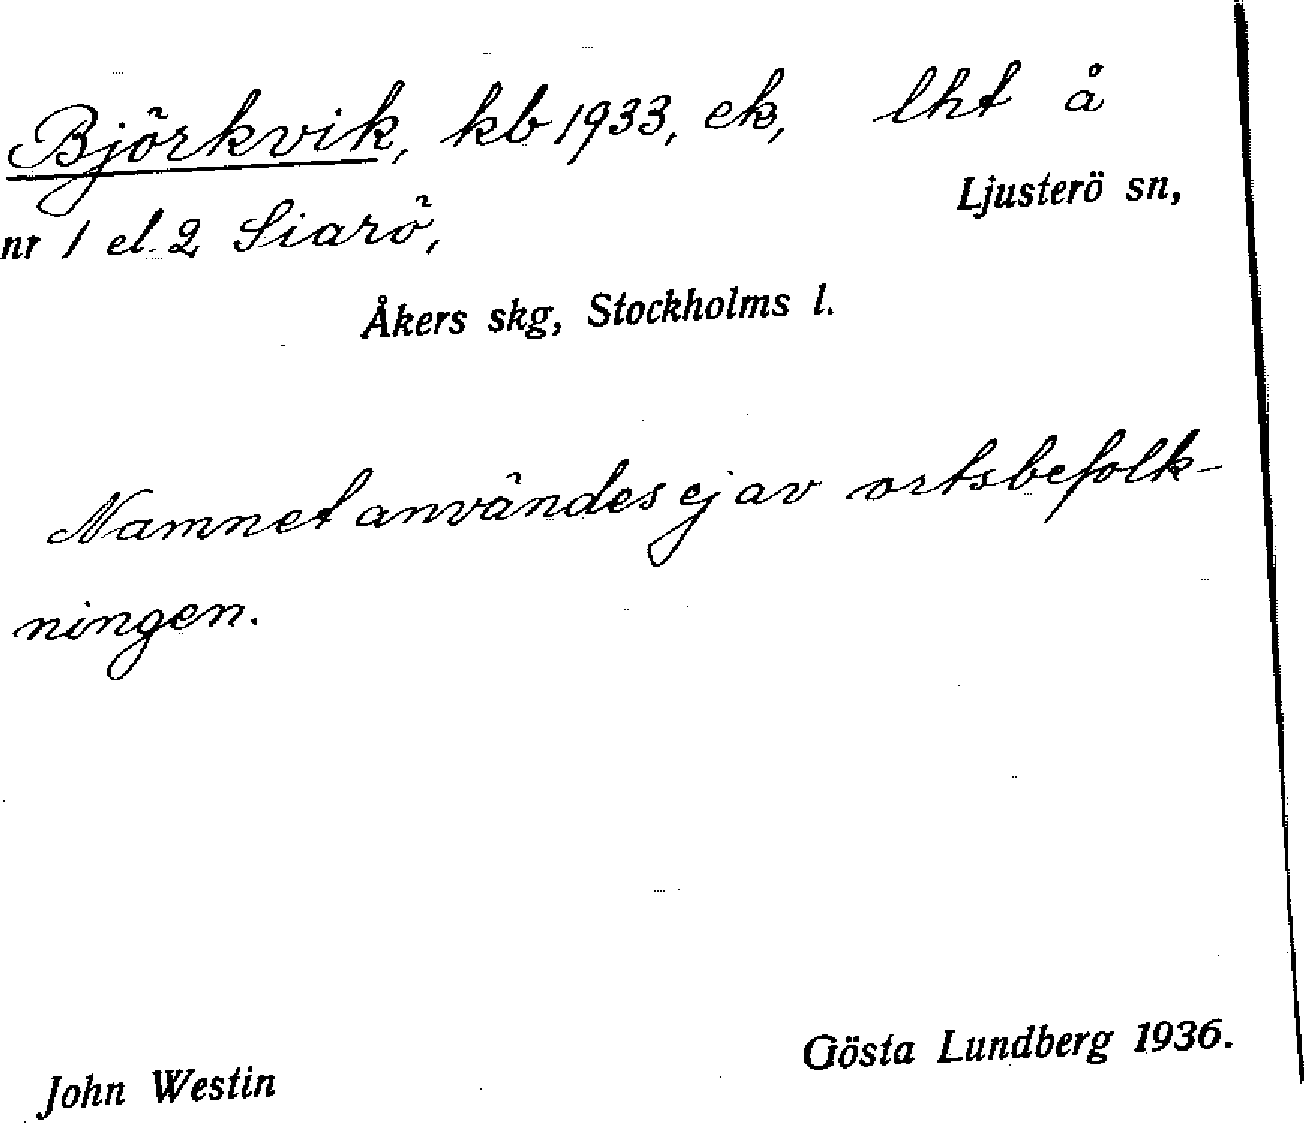 Björkvik, kb 1933, ek, lht å
nr 1 el. 2 Siarö, Ljusterö sn,
Åkers skg, Stockholms l.
Namnet användes ej av ortsbefolk-
ningen.
John Westin Gösta Lundberg 1936.